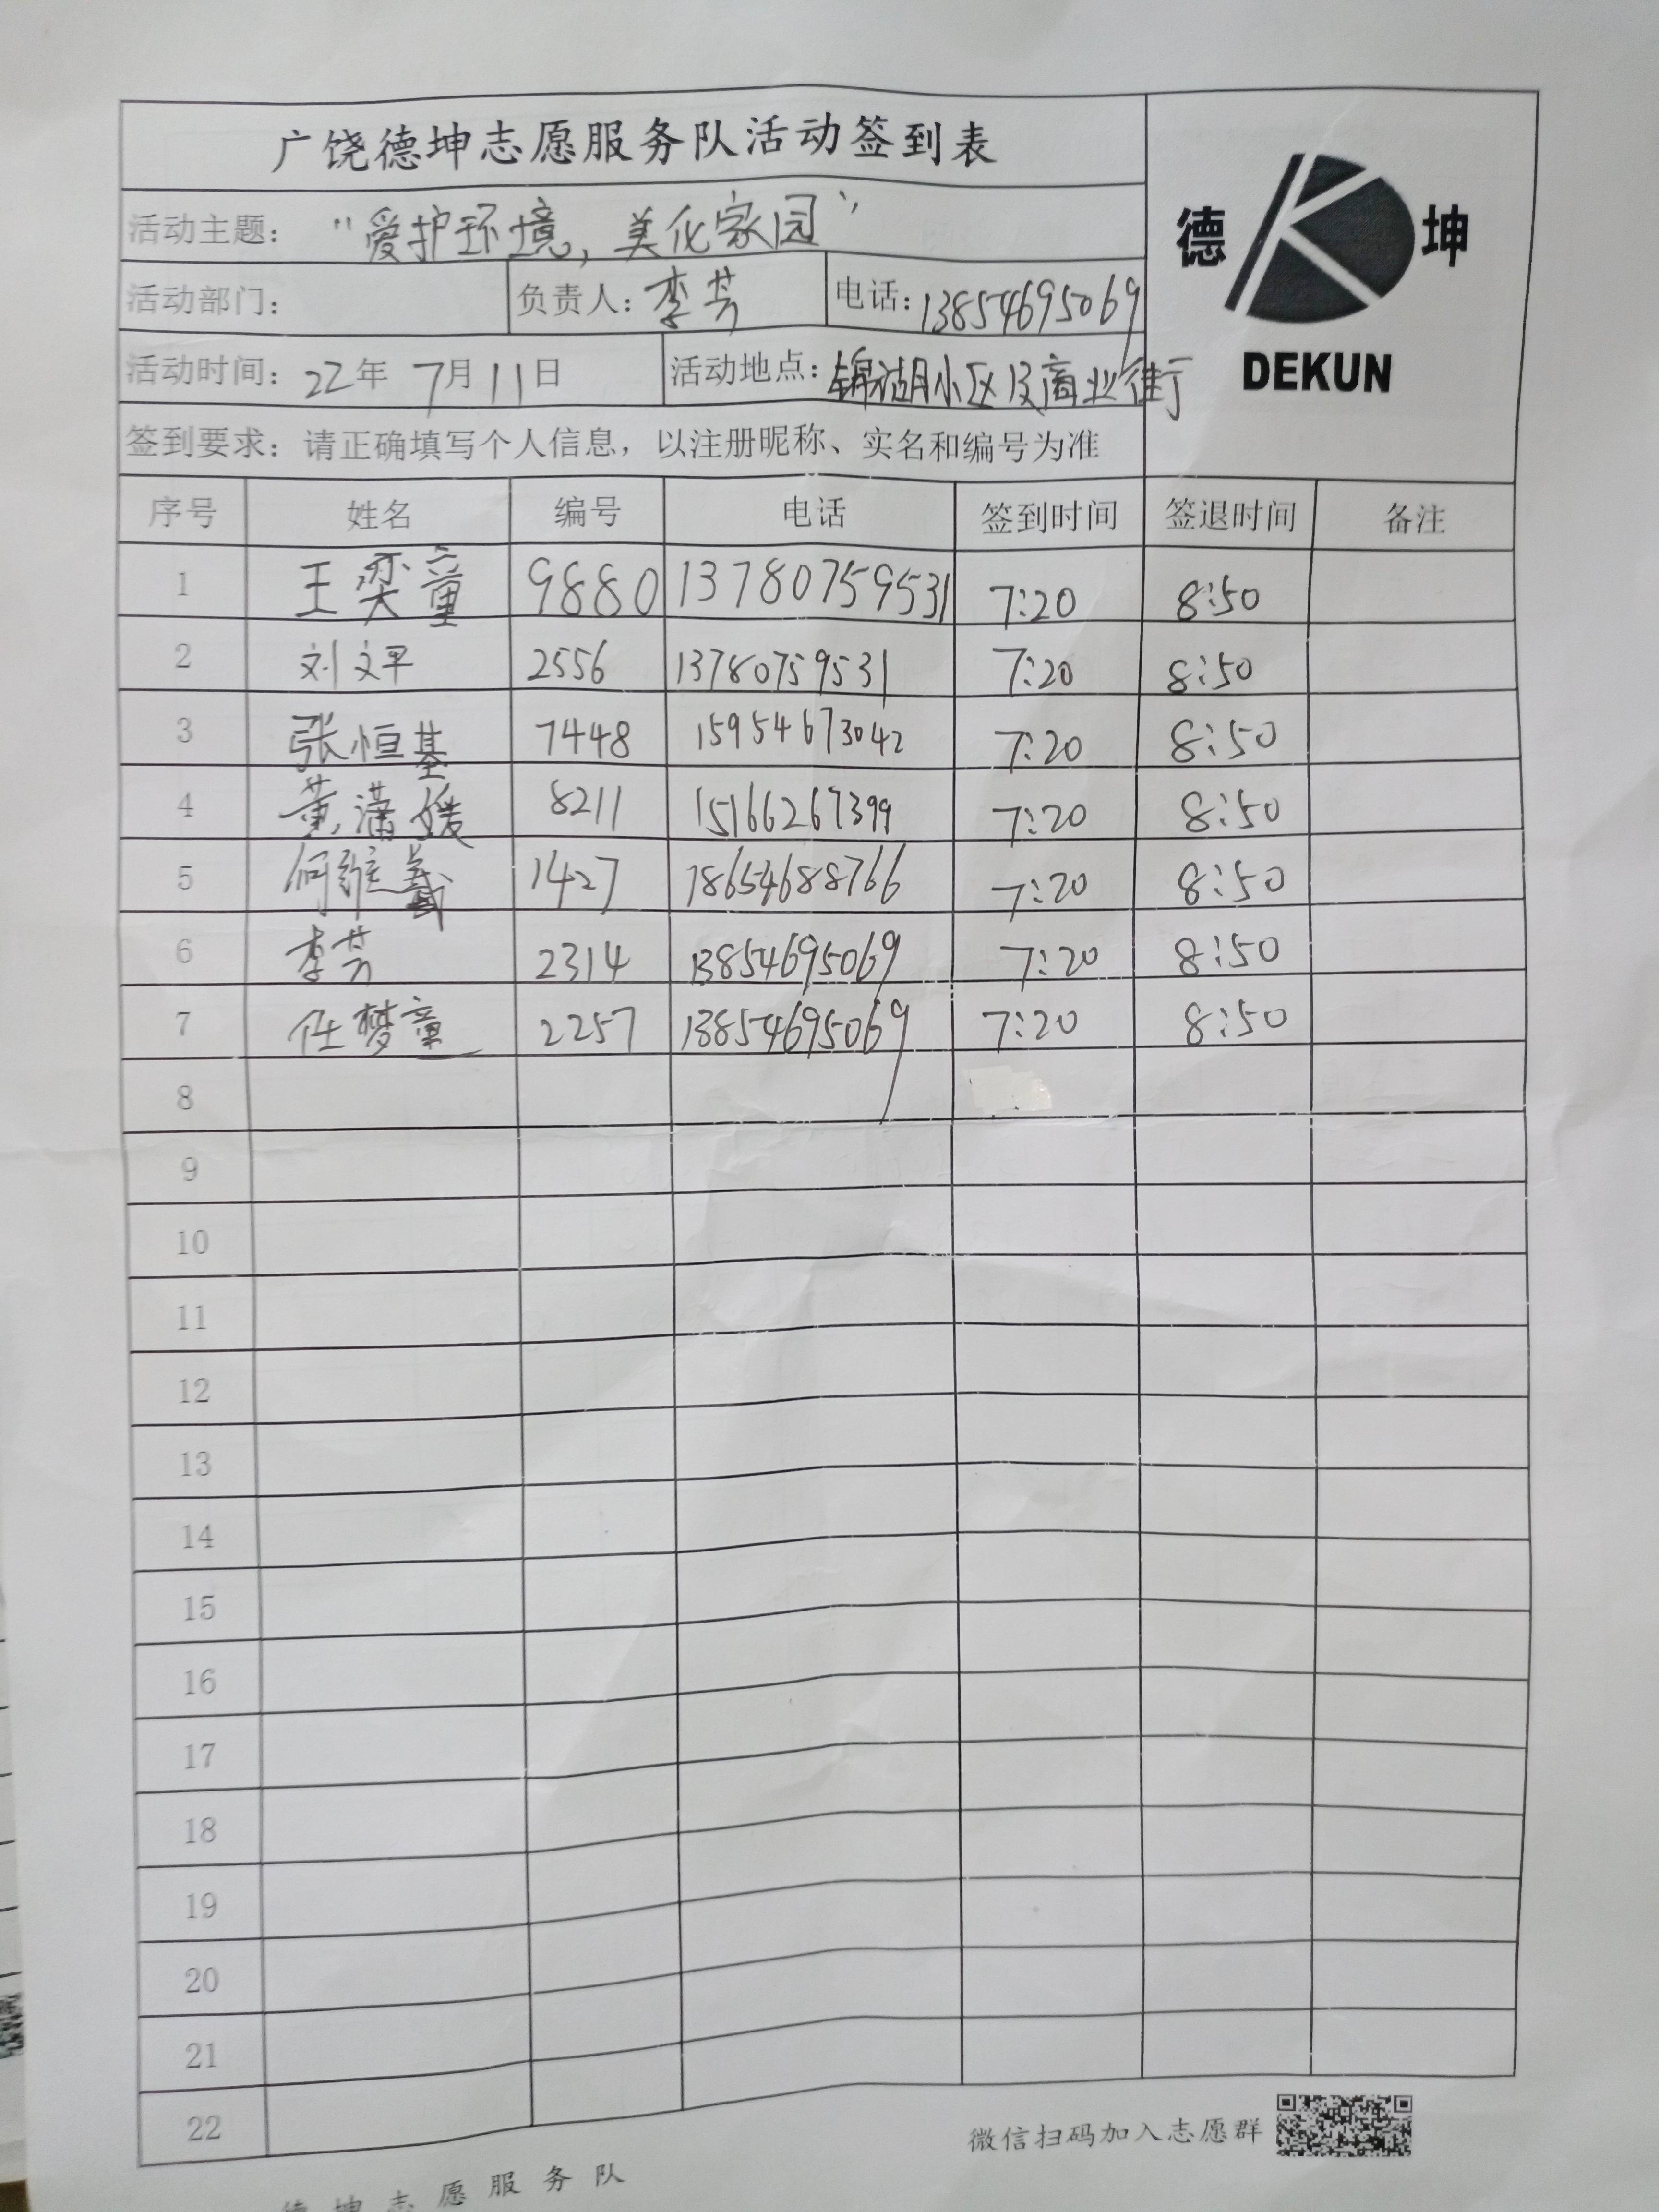 广饶德坤志愿服务队活动签到表
德 坤
DEKUN
活动主题： “爱护环境，美化家园”
活动部门： 负责人：李芳 电话：13854695069
活动时间：22年 7月11日 活动地点：锦湖小区及商业街
签到要求：请正确填写个人信息，以注册昵称、实名和编号为准
序号 姓名 编号 电话 签到时间 签退时间 备注
1 王奕童 9880 13780759531 7:20 8:50
2 刘文平 2556 13780759531 7:20 8:50
3 张恒基 7448 15954673042 7:20 8:50
4 黄潇媛 8211 15166267399 7:20 8:50
5 何维羲 1427 18654688766 7:20 8:50
6 李芳 2314 13854695069 7:20 8:50
7 任梦童 2257 13854695069 7:20 8:50
8
9
10
11
12
13
14
15
16
17
18
19
20
21
22
微信扫码加入志愿群
德坤志愿服务队